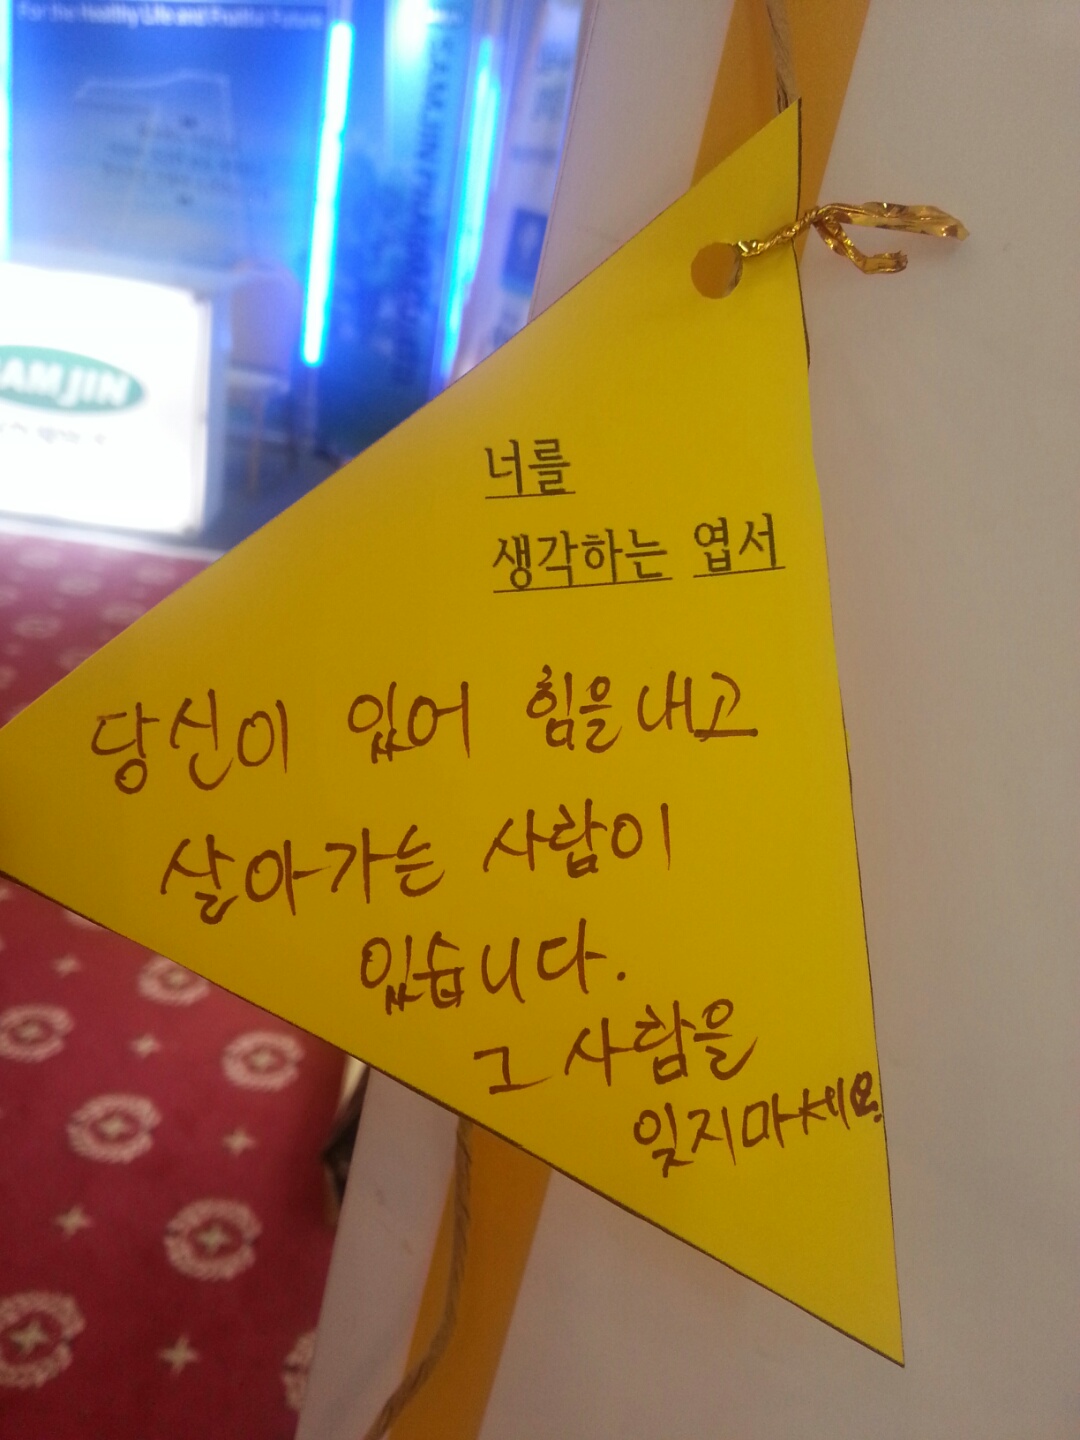 For the Healthy Life and Fruitful Future
SAMJIN
AMJIN
너를
생각하는 엽서
당신이 있어 힘을내고
살아가는 사람이
있습니다.
그 사람을
잊지마세요.